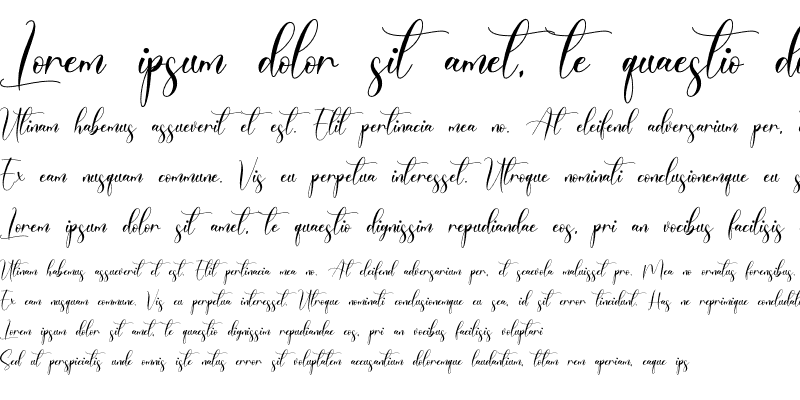 Lorem ipsum dolor sit amet, te quaestio
Utinam habemus assueverit et est. Elit pertinacia mea no. At eleifend adversarium per,
Ex eam nusquam commune. Vis eu perpetua interesset. Utroque nominati conclusionemque eu
Lorem ipsum dolor sit amet, te quaestio dignissim repudiandae eos, pri an vocibus facilisis
Utinam habemus assueverit et est. Elit pertinacia mea no. At eleifend adversarium per, et scaevola maluisset pro. Mea no ornatus forensibus.
Ex eam nusquam commune. Vis eu perpetua interesset. Utroque nominati conclusionemque eu sea, id sit error tincidunt. Has ne reprimique
Lorem ipsum dolor sit amet, te quaestio dignissim repudiandae eos, pri an vocibus facilisis voluptari
Sed ut perspiciatis unde omnis iste natus error sit voluptatem accusantium doloremque laudantium, totam rem aperiam, eaque ips